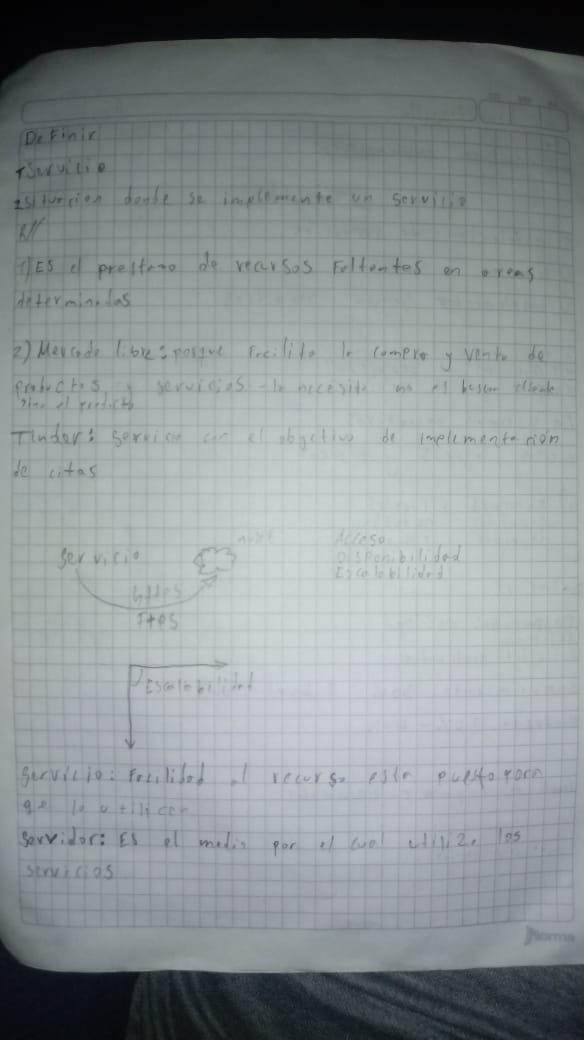 Definir
1 Servicio
2 Situacion donde se implemente un servicio
R//
1) Es el prestamo de recursos Faltantes en areas
determinadas
2) Mercado libre: porque Facilita la compra y venta de
productos y servicios - lo necesita no es buscar cliente
sino el producto
Tinder: Servicio con el objetivo de implementación
de citas
Servicio
nube
Acceso
Disponibilidad
Escalabilidad
https
Escalabilidad
Servicio: Facilidad al recurso esta puesto para
qe lo utilicen
Servidor: Es el medio por el cual utiliza los
servicios
Norma